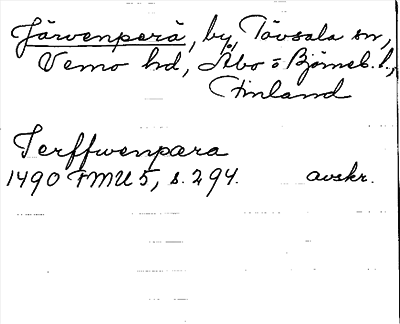 Järvenperä, by, Tövsala sn,
Vemo hd, Åbo o Björneb. l.,
Finland
Jerffwenpara
1490 FMU 5, s. 294. avskr.